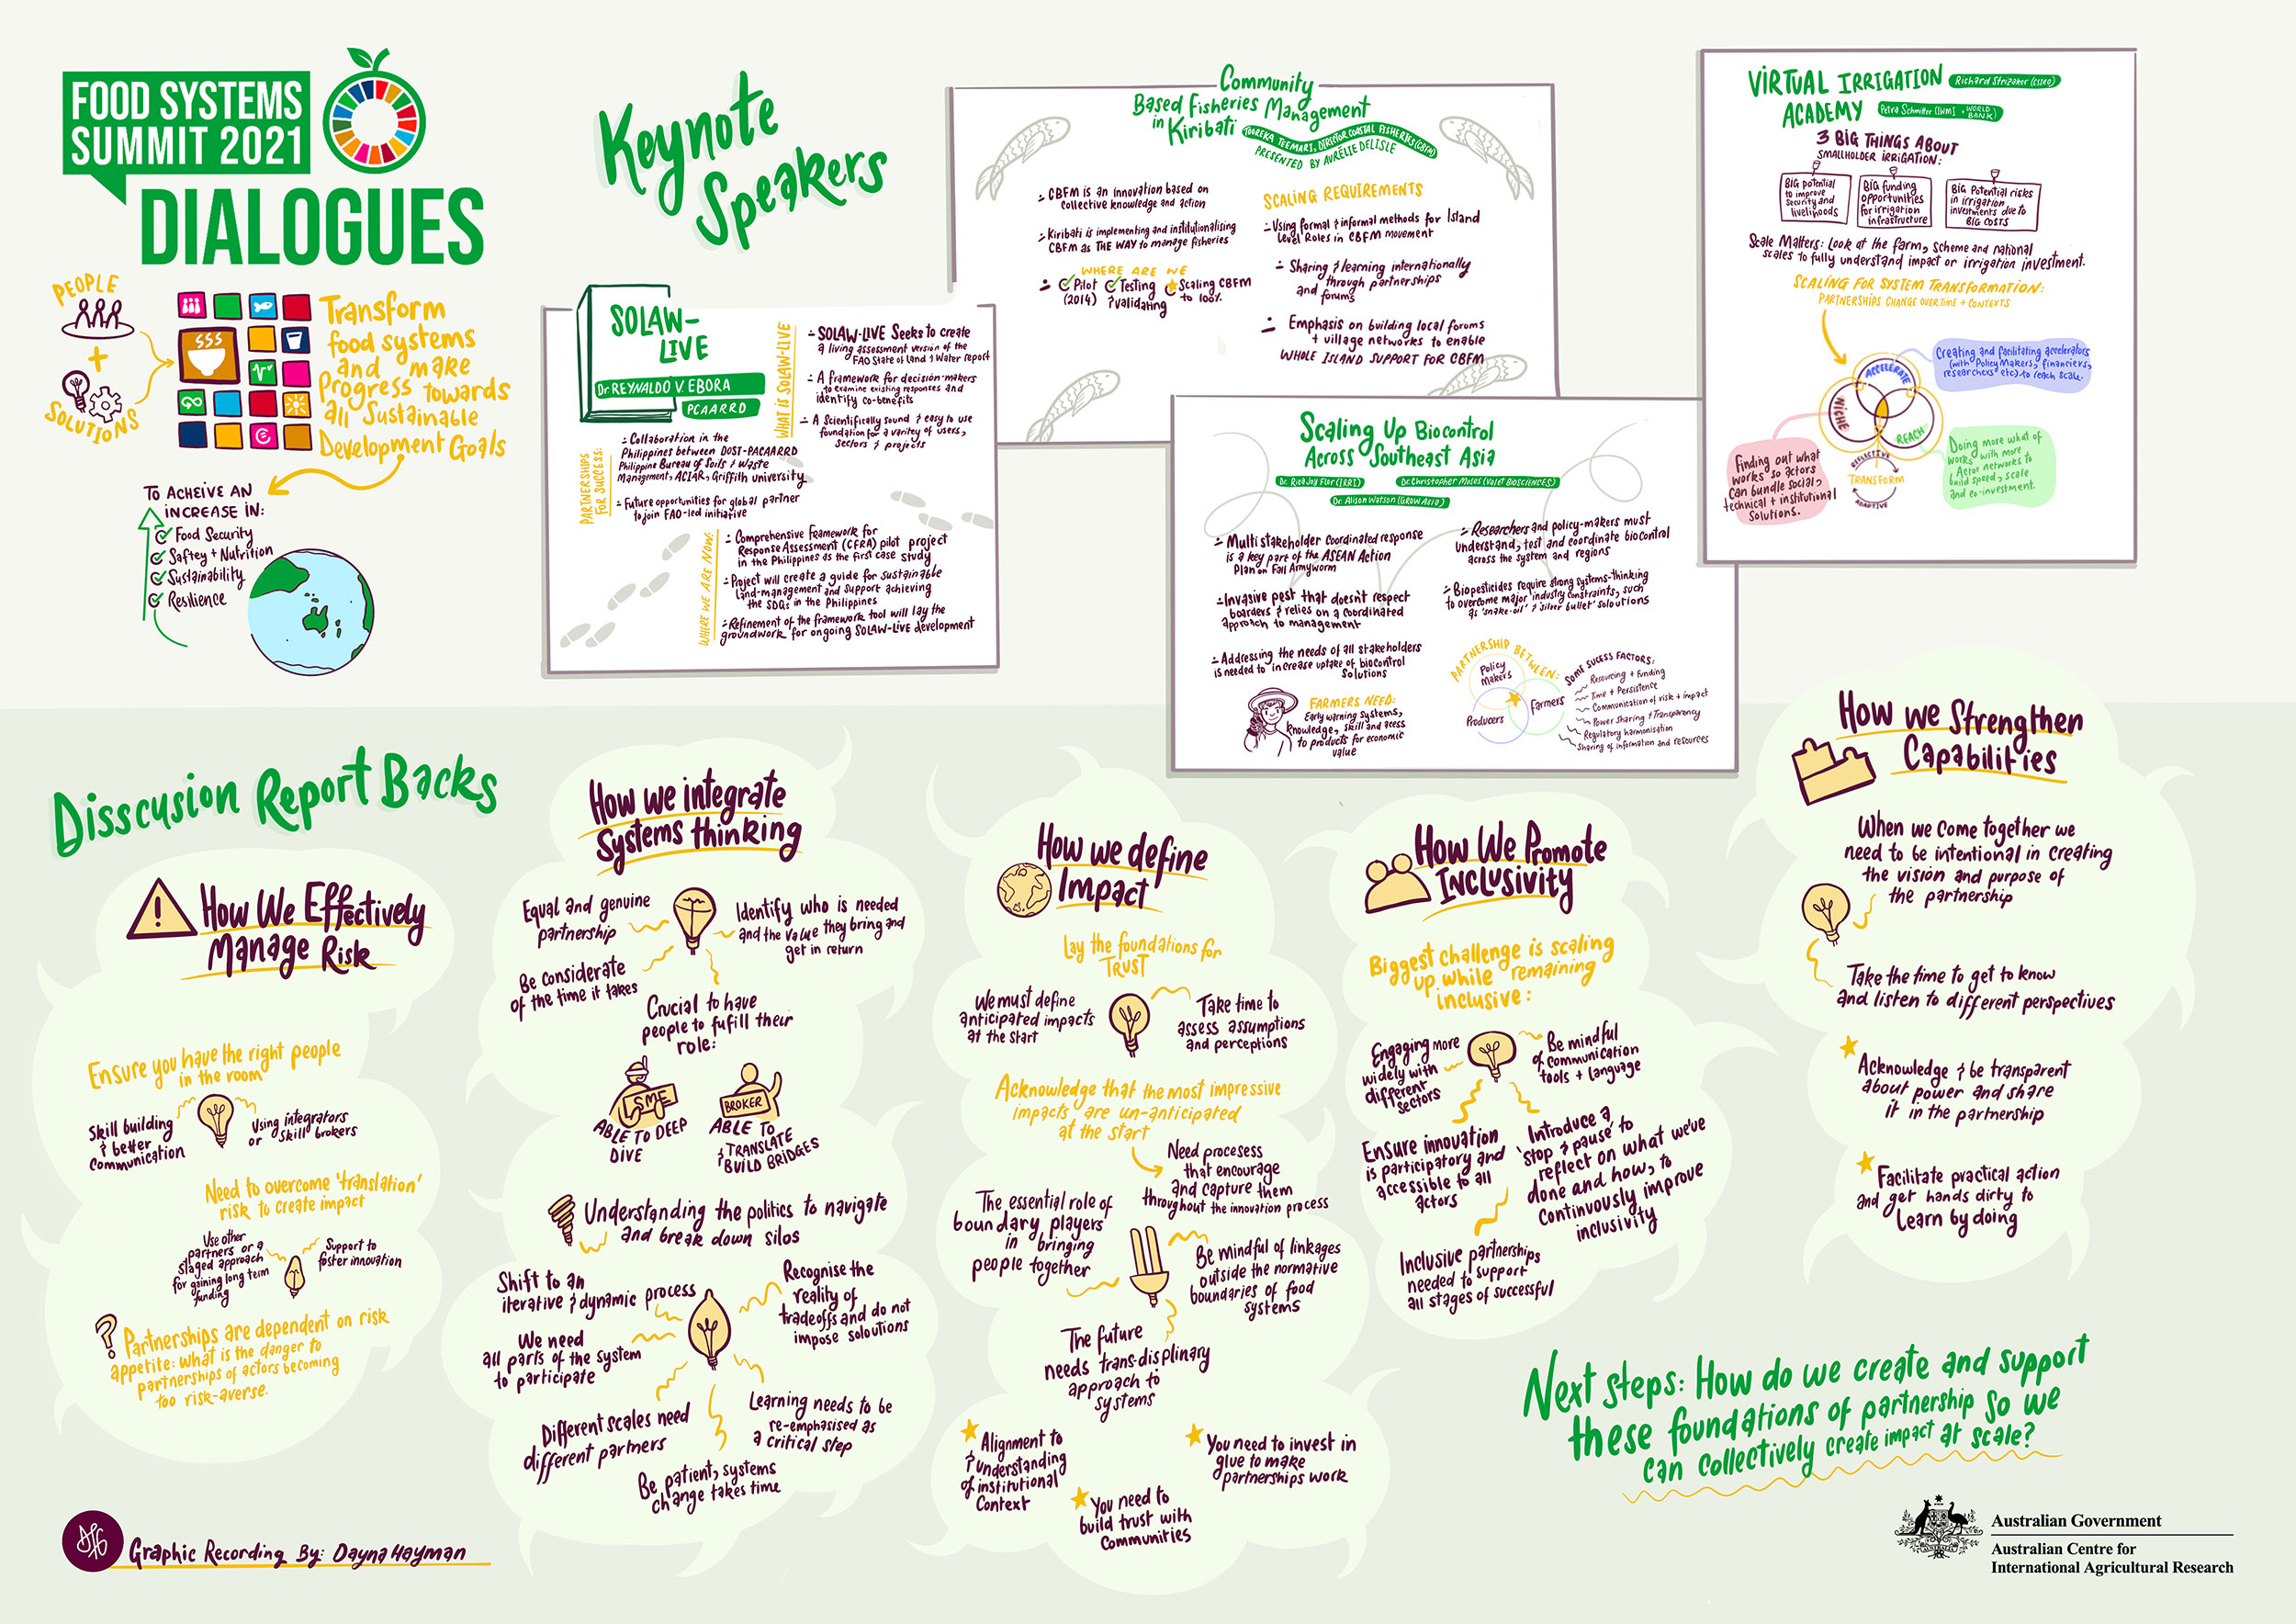 FOOD SYSTEMS
SUMMIT 2021
DIALOGUES
PEOPLE
+
SOLUTIONS
Transform
food systems
and make
Progress towards
all Sustainable
Development Goals
TO ACHEIVE AN
INCREASE IN:
Food Security
Saftey + Nutrition
Sustainability
Resilience
Keynote
Speakers
SOLAW-
LIVE
Dr REYNALDO V. EBORA
PCAARRD
WHAT IS SOLAW-LIVE
- SOLAW-LIVE Seeks to create
a living assessment version of the
FAO State of Land & Water report
- A framework for decision-makers
to examine existing responses and
identify co-benefits
- A Scientifically sound & easy to use
foundation for a varity of users,
sectors & projects
PARTNERSHIPS
FOR SUCCESS:
- Collaboration in the
Philippines between DOST-PACAARRD
Philippine Bureau of Soils & Waste
Management, ACIAR, Griffith university
- Future opportunities for global partner
to join FAO-led initiative
WHERE WE ARE NOW:
- Comprehensive Framework for
Response Assessment (CFRA) pilot project
in the Philippines as the first case study
- Project will create a guide for sustainable
land-management and support achieving
the SDGs in the Philippines
- Refinement of the framework tool will lay the
groundwork for ongoing SOLAW-LIVE development
Community
Based Fisheries Management
in Kiribati
TOOREKA TEEMARI, DIRECTOR COASTAL FISHERIES (CBFM)
PRESENTED BY AURÉLIE DELISLE
- CBFM is an innovation based on
collective knowledge and action
- Kiribati is implementing and institutionalising
CBFM as THE WAY to manage fisheries
WHERE ARE WE
- Pilot Testing Scaling CBFM
(2014) & validating to 100%
SCALING REQUIREMENTS
- Using formal & informal methods for Island
Level Roles in CBFM movement
- Sharing & learning internationally
through partnerships
and forums
- Emphasis on building local forums
+ village networks to enable
WHOLE ISLAND SUPPORT FOR CBFM
Scaling Up Biocontrol
Across Southeast Asia
Dr. Rica Joy Flor (IRRI)
Dr. Christopher Moses (Valet BIOSCIENCES)
Dr. Alison Watson (GROW ASIA)
- Multi stakeholder Coordinated response
is a key part of the ASEAN Action
Plan on Fall Armyworm
- Invasive pest that doesn't respect
boarders & relies on a coordinated
approach to management
- Addressing the needs of all stakeholders
is needed to increase uptake of biocontrol
Solutions
FARMERS NEED:
Early warning systems,
knowledge, skill and acess
to products for economic
value
- Researchers and policy-makers must
understand, test and coordinate biocontrol
across the system and regions
- Biopesticides require strong systems-thinking
to overcome major industry constraints, such
as 'snake-oil' & 'silver bullet' soloutions
PARTNERSHIP BETWEEN:
Policy
Makers
Producers
Farmers
SOME SUCESS FACTORS:
Resourcing + Funding
Time + Persistence
Communication of risk + impact
Power sharing + Transparency
Regulatory harmonisation
Sharing of information and resources
VIRTUAL IRRIGATION
ACADEMY
Richard Strizaker (CSIRO)
Petra Schmitter (IWMI + WORLD BANK)
3 BIG THINGS ABOUT
SMALLHOLDER IRRIGATION:
BIG potential
to improve
security and
livelihoods
BIG funding
opportunities
for irrigation
infrastructure
BIG Potential risks
in irrigation
investments due to
BIG COSTS
Scale Matters: Look at the farm, scheme and national
scales to fully understand impact or irrigation investment.
SCALING FOR SYSTEM TRANSFORMATION:
PARTNERSHIPS CHANGE OVERTIME + CONTEXTS
ACCELERATE
NICHE
REACH
REFLECTIVE
TRANSFORM
ADAPTIVE
Creating and facilitating accelerators
(with Policy Makers, financiers,
researchers etc) to reach scale.
Finding out what
works so actors
can bundle social,
technical + institutional
Solutions.
Doing more what of
works with more
Actor networks to
build speed, scale
and co-investment.
Disscusion Report Backs
How We Effectively
Manage Risk
Ensure you have the right people
in the room
Skill building
& better
communication
Using integrators
or skill brokers
Need to overcome 'translation'
risk to create impact
Use other
partners or a
staged approach
for gaining long term
funding
Support to
foster innovation
? Partnerships are dependent on risk
appetite: what is the danger to
partnerships of actors becoming
too risk-averse.
How we integrate
Systems thinking
Equal and genuine
partnership
Identify who is needed
and the value they bring and
get in return
Be considerate
of the time it takes
Crucial to have
people to fufill their
role:
SME
ABLE TO DEEP
DIVE
BROKER
ABLE TO
& TRANSLATE
BUILD BRIDGES
Understanding the politics to navigate
and break down silos
Shift to an
iterative & dynamic process
Recognise the
reality of
tradeoffs and do not
impose soloutions
We need
all parts of the system
to participate
Different scales need
different partners
Learning needs to be
re-emphasised as
a critical step
Be patient, systems
change takes time
How we define
Impact
Lay the foundations for
TRUST
We must define
anticipated impacts
at the start
Take time to
assess assumptions
and perceptions
Acknowledge that the most impressive
impacts are un-anticipated
at the start
Need procsess
that encourage
and capture them
throughout the innovation process
The essential role of
boundary players
in bringing
people together
Be mindful of linkages
outside the normative
boundaries of food
systems
The future
needs trans-displinary
approach to
systems
Alignment to
& understanding
of institutional
Context
You need to invest in
glue to make
partnerships work
You need to
build trust with
Communities
How We Promote
Inclusivity
Biggest challenge is scaling
up while remaining
inclusive:
Engaging more
widely with
different
sectors
Be mindful
of communication
tools + language
Ensure innovation
is participatory and
accessible to all
actors
Introduce a
'stop & pause' to
reflect on what we've
done and how, to
Continuously improve
inclusivity
Inclusive partnerships
needed to support
all stages of successful
How we Strengthen
Capabilities
When we come together we
need to be intentional in creating
the vision and purpose of
the partnership
Take the time to get to know
and listen to different perspectives
Acknowledge & be transparent
about power and share
it in the partnership
Facilitate practical action
and get hands dirty to
Learn by doing
Next steps: How do we create and support
these foundations of partnership so we
can collectively create impact at scale?
Graphic Recording By: Dayna Hayman
Australian Government
Australian Centre for
International Agricultural Research